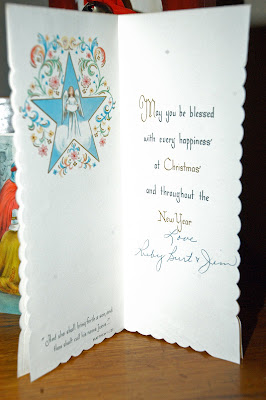 May you be blessed
with every happiness
at Christmas
and throughout the
New Year
Love
Ruby Burt & Jim
"And she shall bring forth a son, and
thou shalt call his name Jesus."